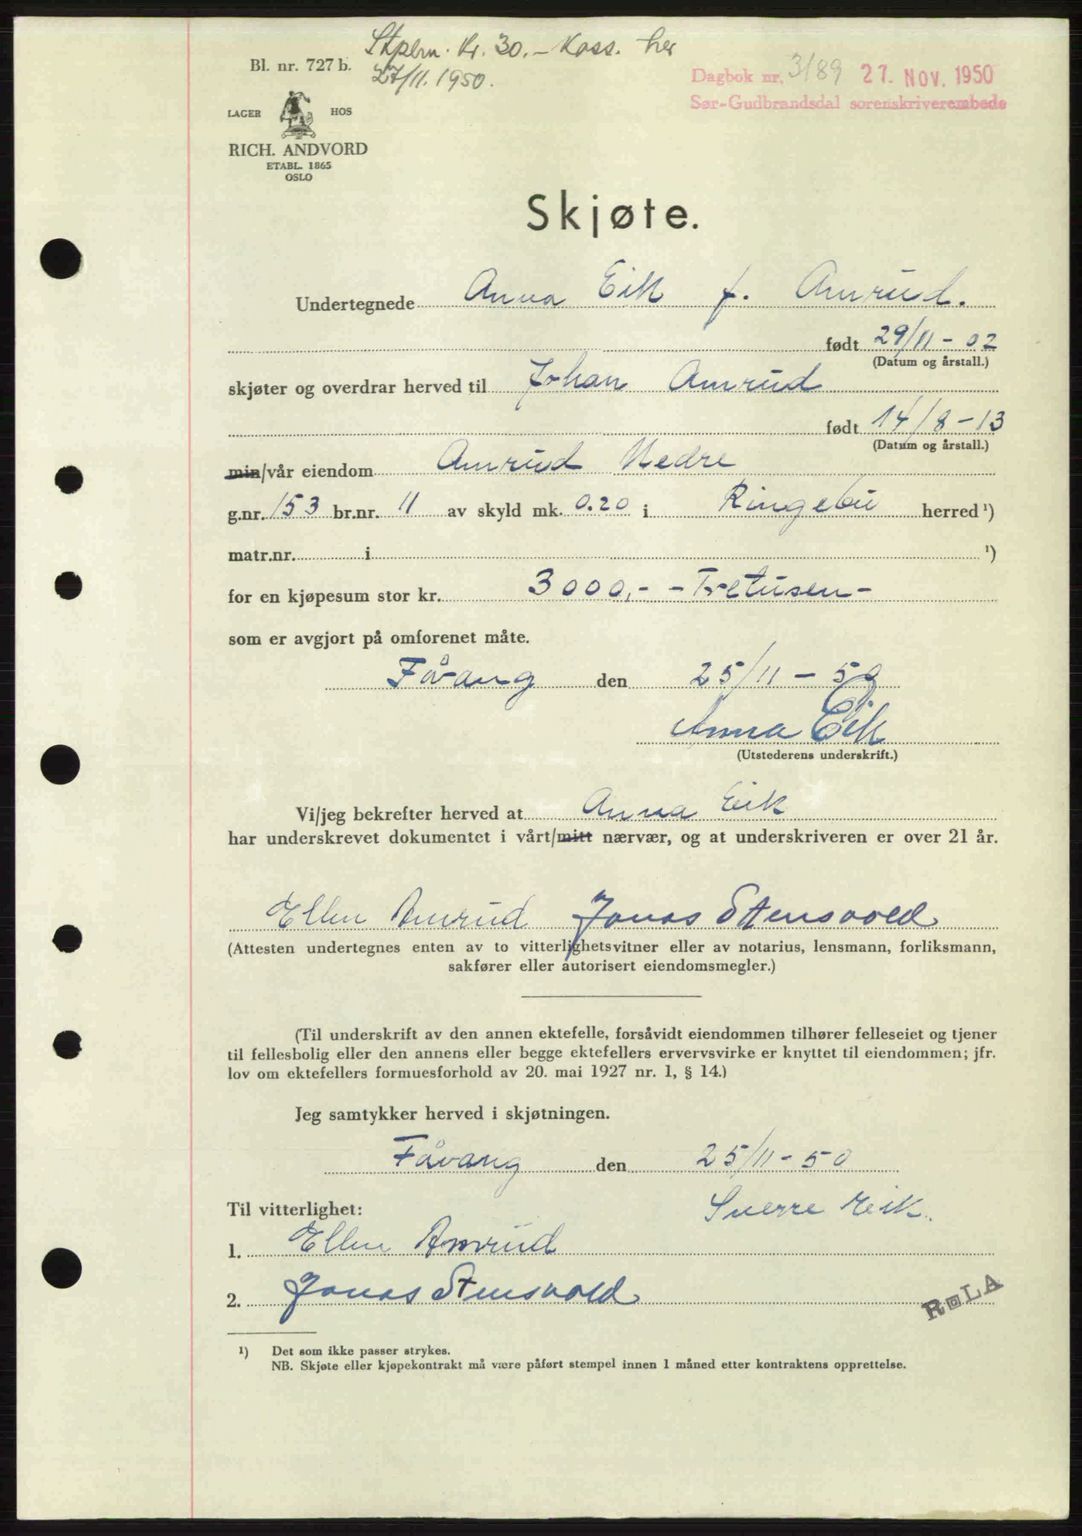 Stplm. Kr. 30.- Kass. her
27/11.1950.
Bl. nr. 727 b.
Dagbok nr. 3189 27. NOV. 1950
Sør-Gudbrandsdal sorenskriverembede
LAGER HOS
RICH. ANDVORD
ETABL. 1865
OSLO
Skjøte.
Undertegnede Anna Eik f. Amrud.
født 29/11-02
(Datum og årstall.)
skjøter og overdrar herved til Johan Amrud
født 14/8-13
(Datum og årstall.)
min/vår eiendom Amrud Nedre
g.nr. 153 br.nr. 11 av skyld mk. 0.20 i Ringebu herred ¹)
matr.nr. i ¹)
for en kjøpesum stor kr. 3000,- -Tretusen-
som er avgjort på omforenet måte.
Fåvang den 25/11-50
Anna Eik
(Utstederens underskrift.)
Vi/jeg bekrefter herved at Anna Eik
har underskrevet dokumentet i vårt/mitt nærvær, og at underskriveren er over 21 år.
Ellen Amrud Jonas Stensvold
(Attesten undertegnes enten av to vitterlighetsvitner eller av notarius, lensmann, forliksmann,
sakfører eller autorisert eiendomsmegler.)
(Til underskrift av den annen ektefelle, forsåvidt eiendommen tilhører felleseiet og tjener
til fellesbolig eller den annens eller begge ektefellers ervervsvirke er knyttet til eiendommen; jfr.
lov om ektefellers formuesforhold av 20. mai 1927 nr. 1, § 14.)
Jeg samtykker herved i skjøtningen.
Fåvang den 25/11-50
Til vitterlighet:
Sverre Eik.
1. Ellen Amrud
2. Jonas Stensvold
RøLA
¹) Det som ikke passer strykes.
NB. Skjøte eller kjøpekontrakt må være påført stempel innen 1 måned etter kontraktens opprettelse.